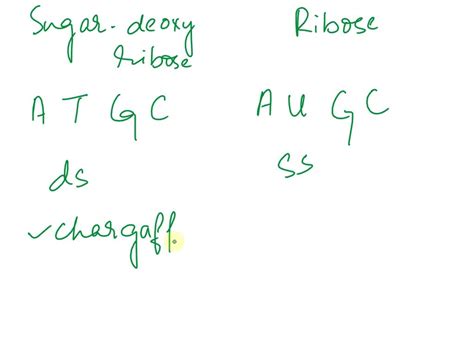 Sugar - deoxy
ribose
Ribose
A T G C
A U G C
ds
ss
✓chargaff